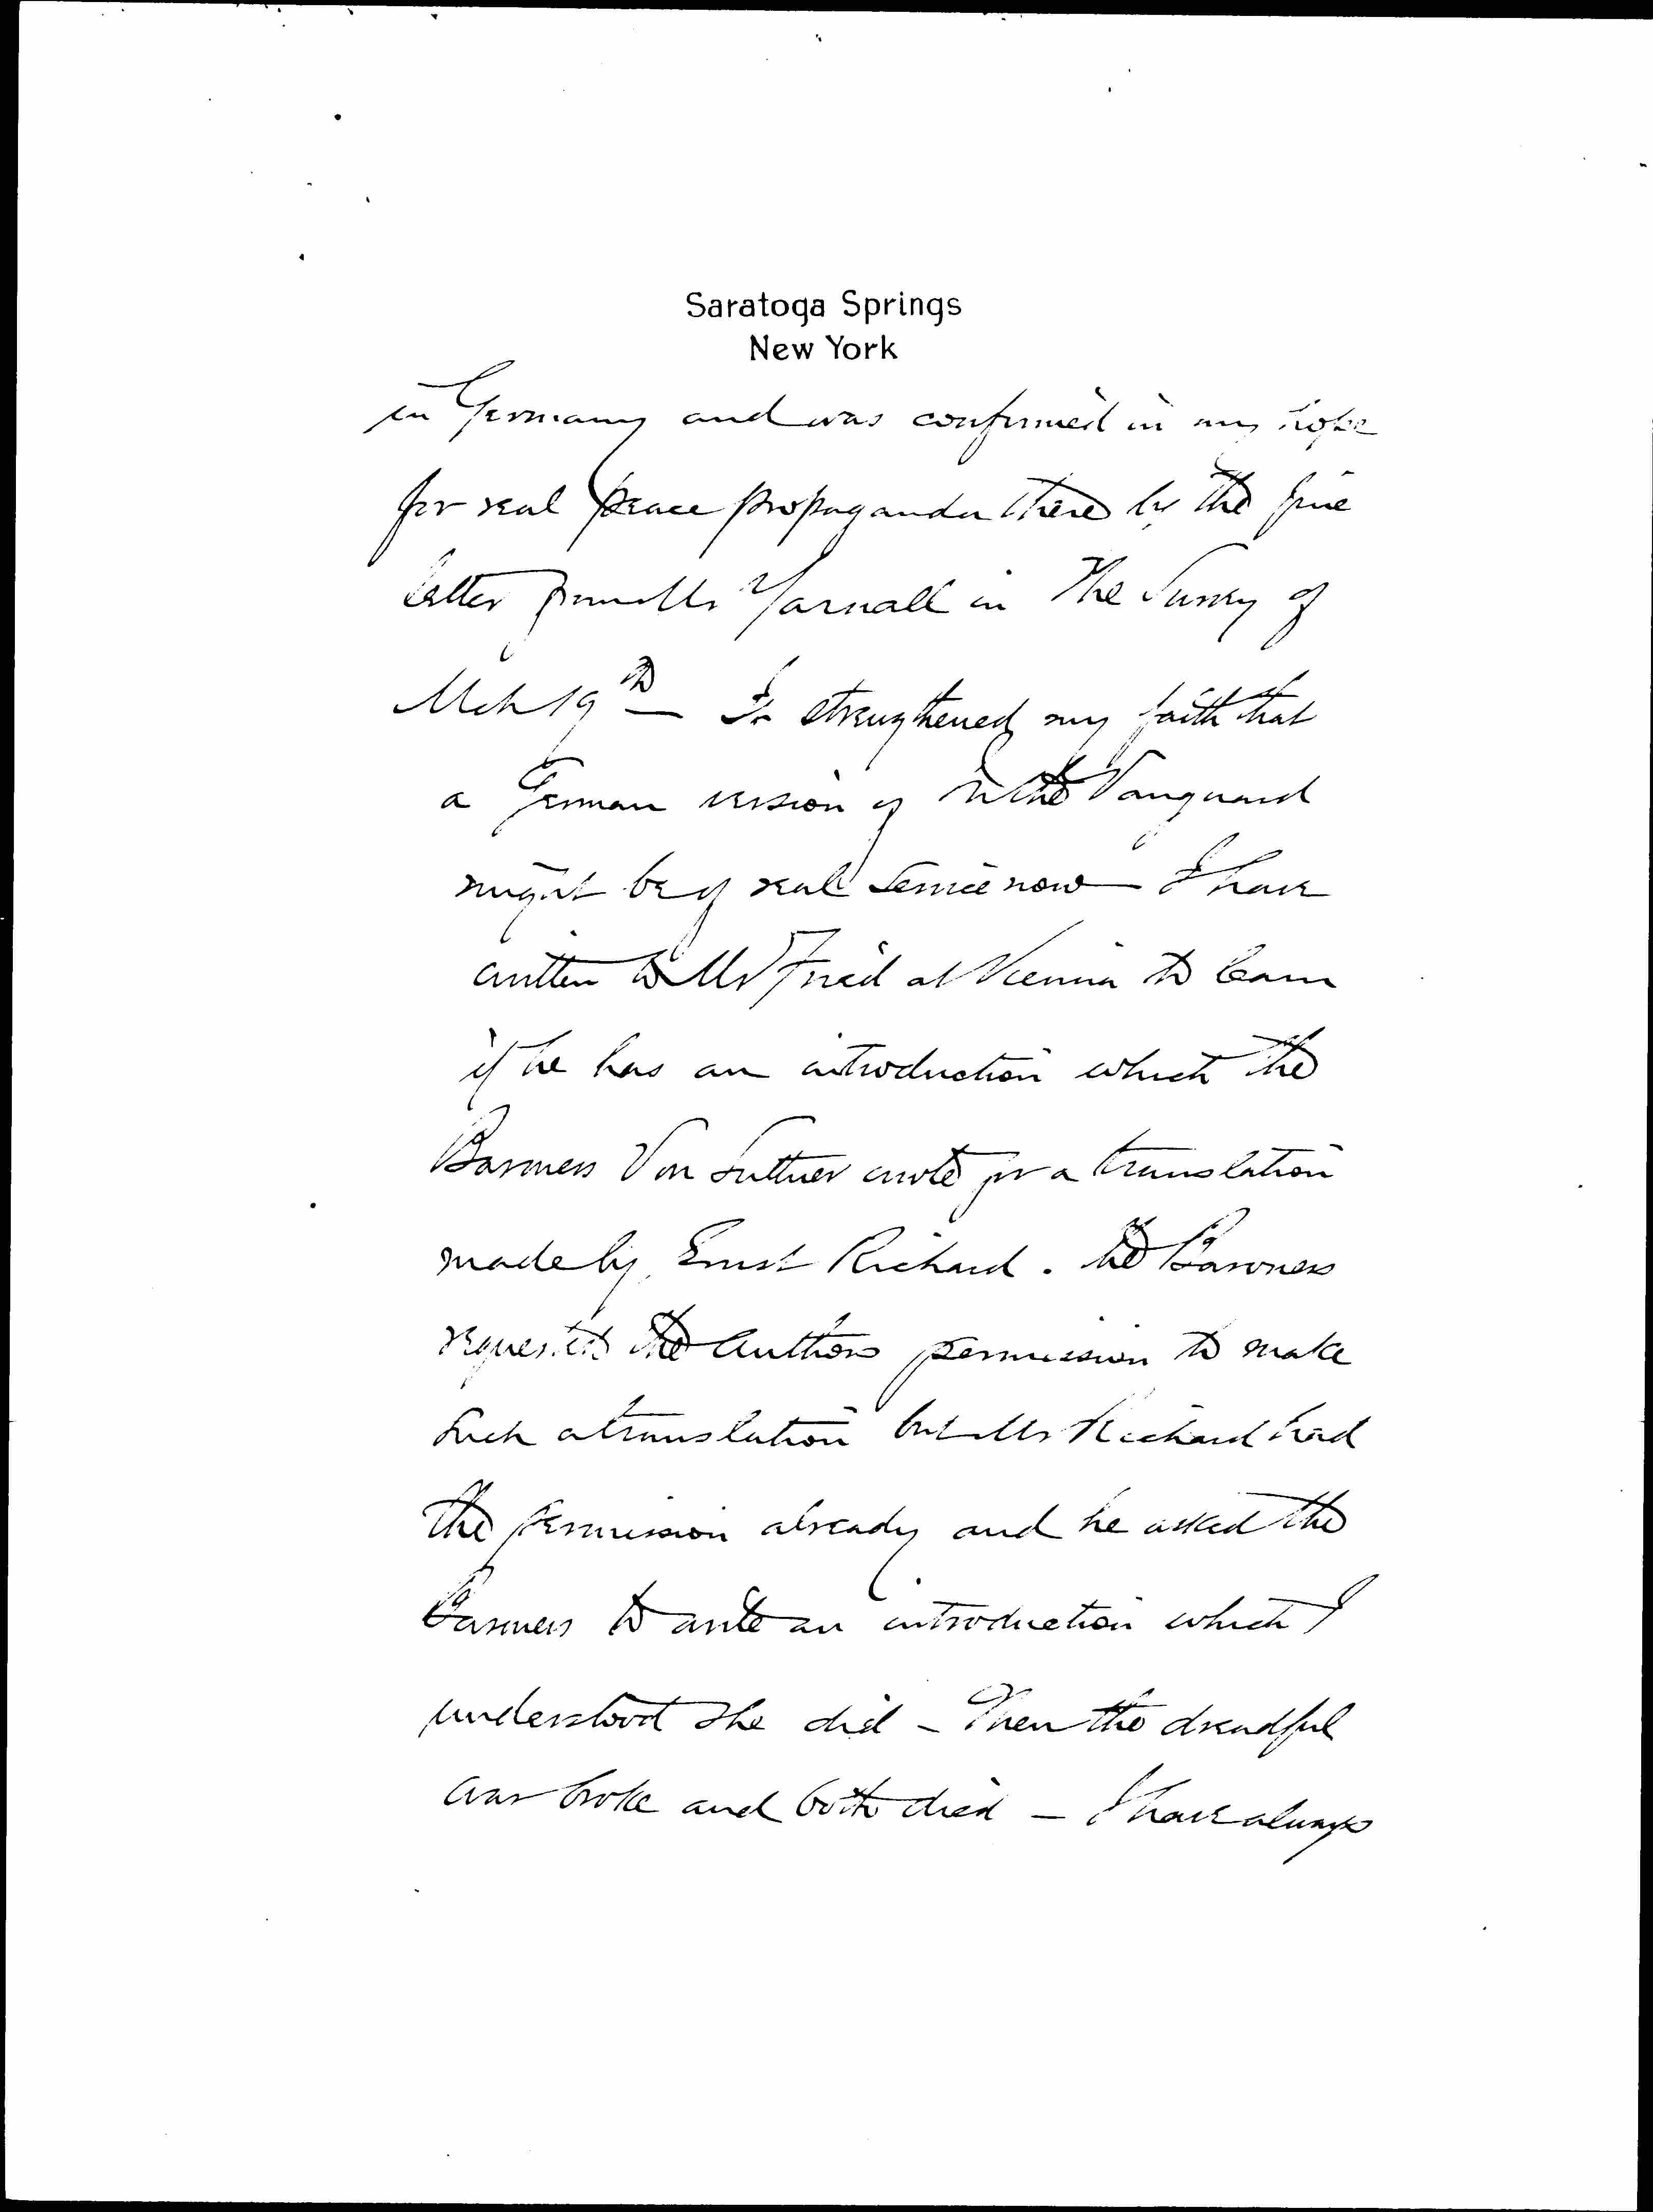 Saratoga Springs
New York
in Germany and was confirmed in my hope
for real peace propaganda there by the fine
letter from Mr Yarnall in The Survey of
Mch 19th — It strengthened my faith that
a German version of In the Vanguard
might be of real service now — I have
written to Mr Fried at Vienna to learn
if he has an introduction which the
Baroness Von Suttner wrote for a translation
made by Ernst Richard. The Baroness
requested the Authors permission to make
such a translation but Mr Richard had
the permission already and he asked the
Baroness to write an introduction which I
understood she did – Then the dreadful
war broke and both died – I have always